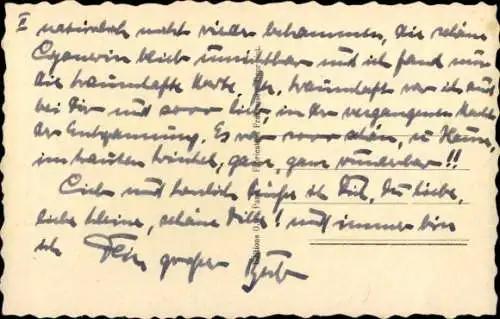 II natürlich nicht wieder bekommen, die schöne
Zyganerin blieb unsichtbar und ich fand nur
die traumhafte Karte. Ja, traumhaft war ich auch
bei Dir und soooo lieb, in der vergangenen Nacht
der Entspannung. Es war soooo schön, zu Hause,
im trauten Winkel, ganz, ganz wunderbar!!
Lieb und herzlich grüße ich Dich, Du liebe,
liebe kleine, schöne! und immer bin
ich Dein großer
Editions